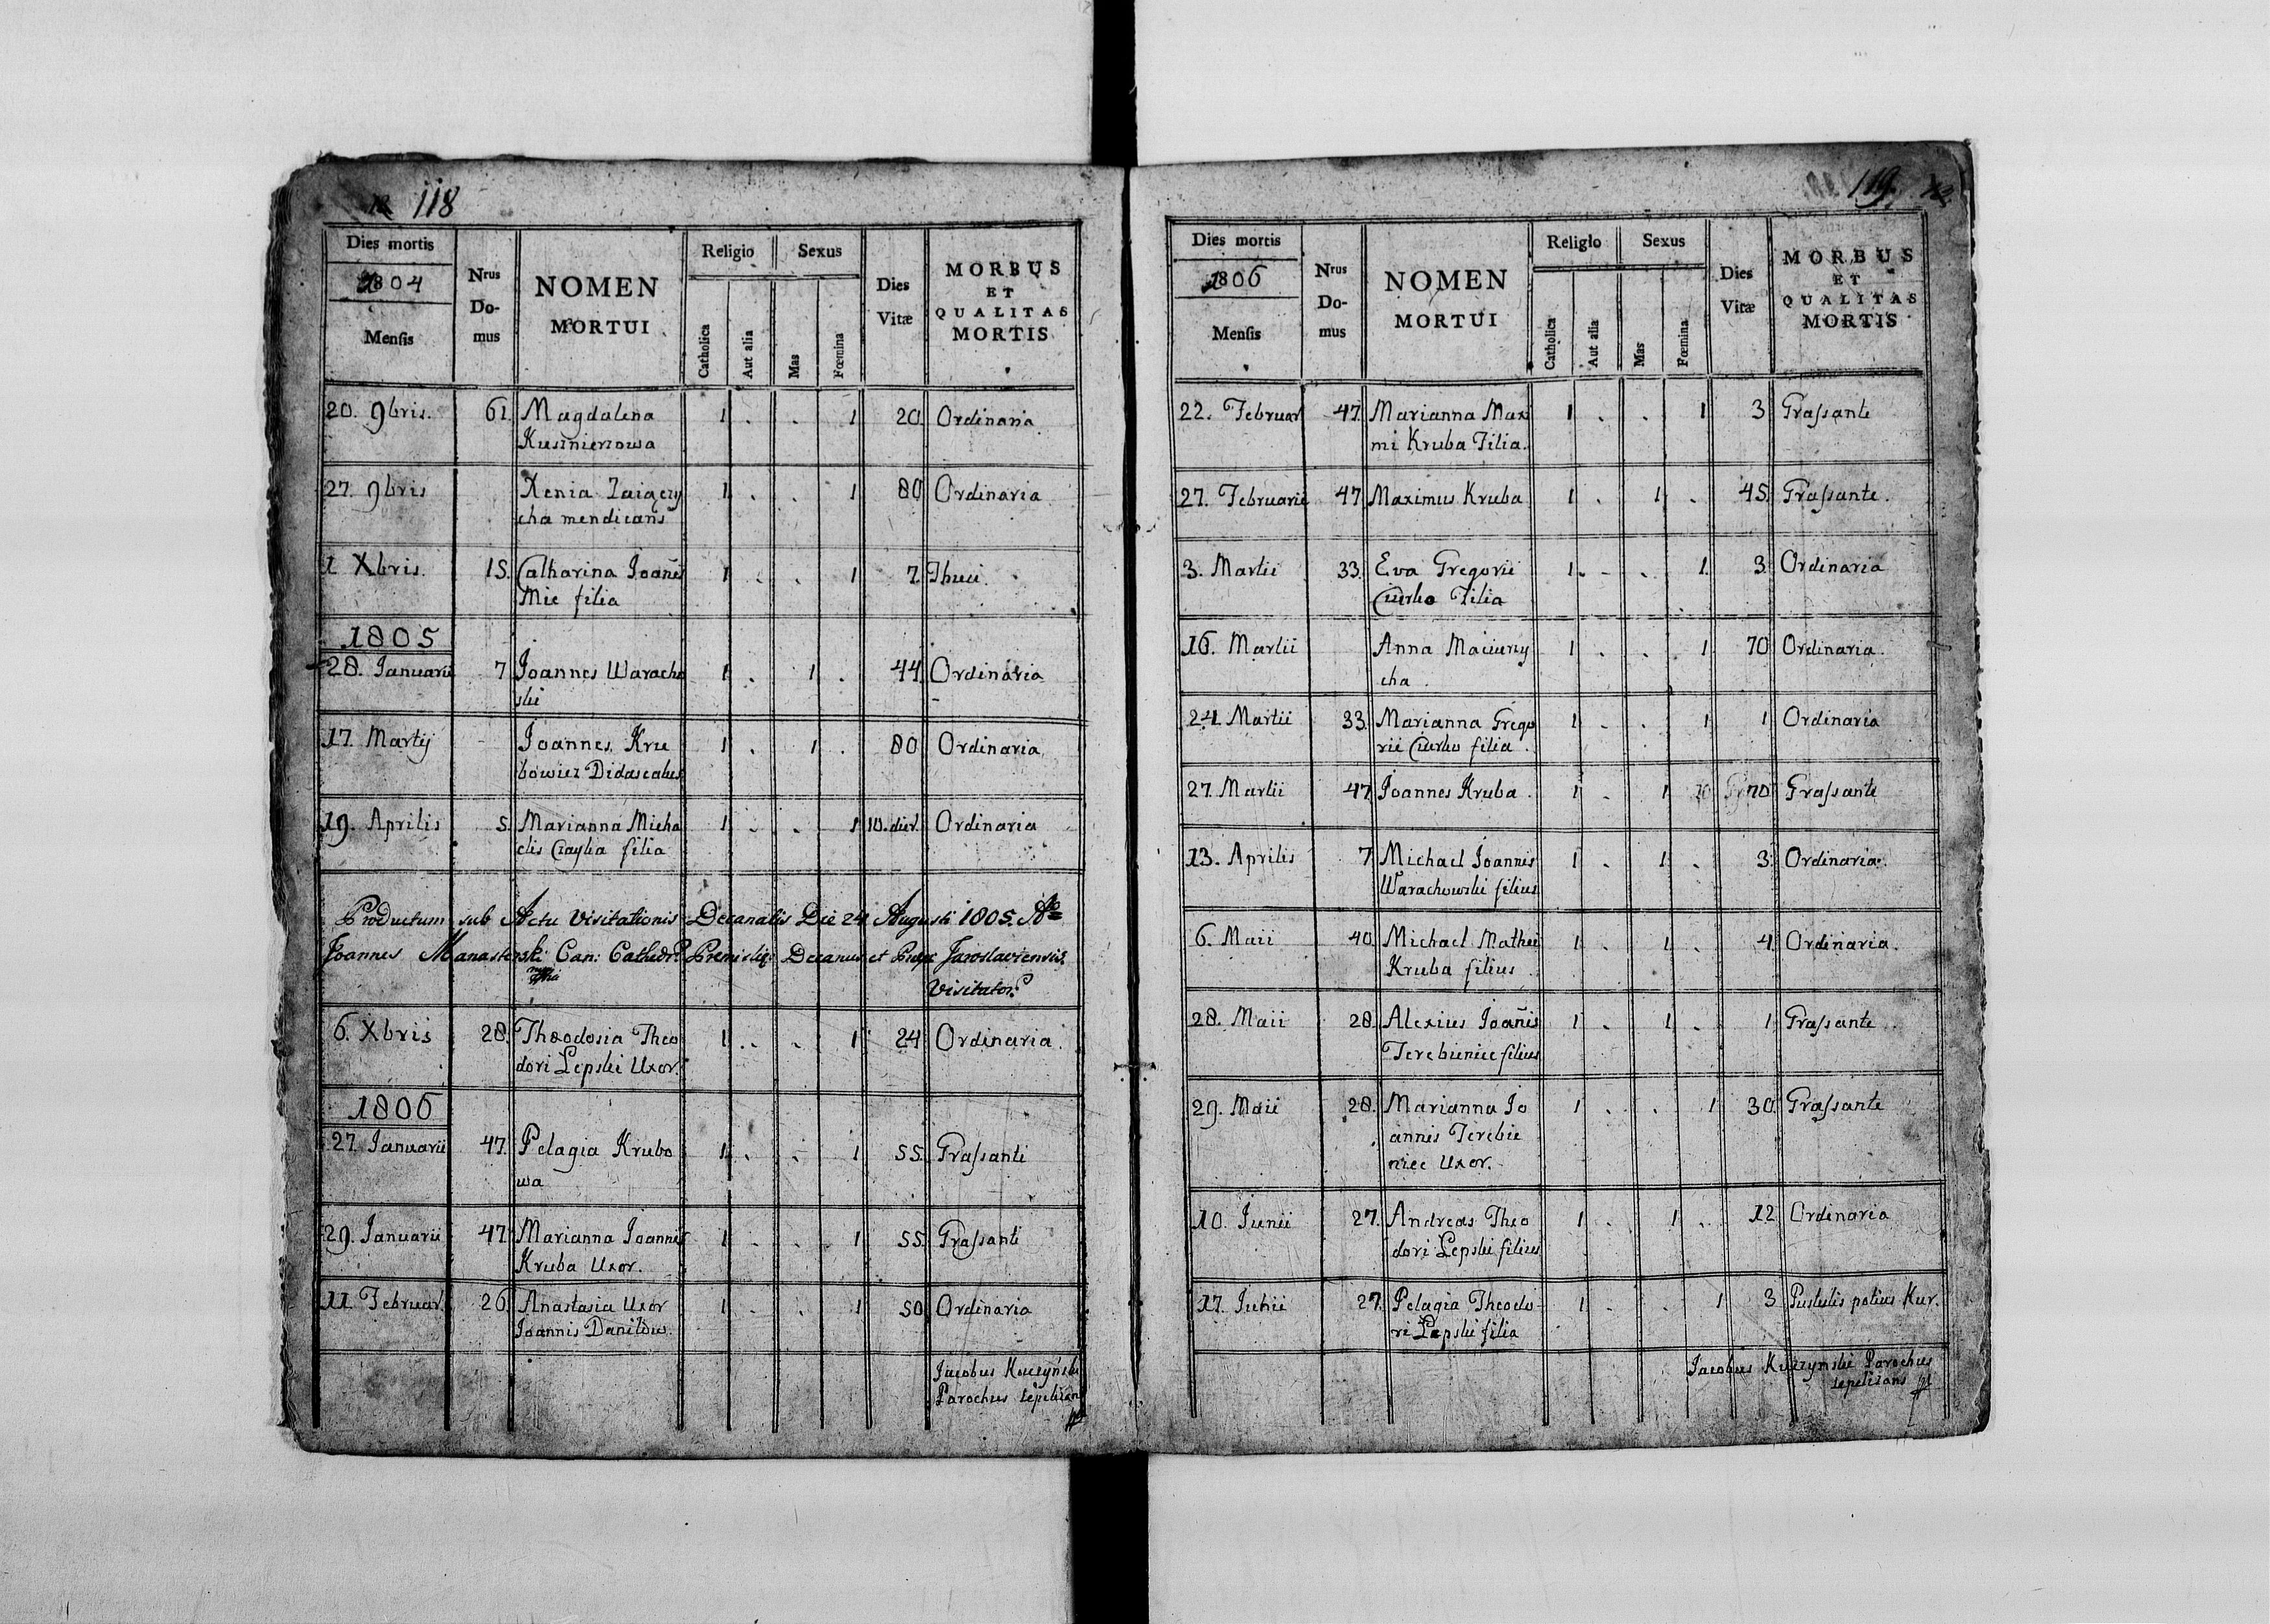 118
Dies mortis
1804
Mensis
Nrus Do-mus
NOMEN
MORTUI
Religio
Catholica
Aut alia
Sexus
Mas
Fœmina
Dies
Vitæ
MORBUS
ET
QUALITAS
MORTIS
20. 9bris. 61. Magdalena 1 . . 1 20. Ordinaria
Kusznierzowa
27. 9bris Xenia 1 . . 1 80 Ordinaria
cha mendicans
1 Xbris. 15. Catharina Joañis 1 . . 1 7.
Mic filia
1805
28. Januarii 7. Joannes Waracho 1 . 1 . 44. Ordinaria
ski
17. Martij Joannes Kru 1 . 1 . 80 Ordinaria
bowicz Didascalus
19. Aprilis 5. Marianna Micha 1 . . 1 10. dier. Ordinaria
elis Czayka filia
Productum sub Actu Visitationis Decanalis Die 24 Augusti 1805 Ao
Joannes Manasterski Can: Cathedr. Premisliz: Decanus et Jaroslaviensis
Visitator
6. Xbris 28. Theodosia Theo 1 . . 1 24 Ordinaria.
dori Lepski Uxor.
1806
27. Januarii 47. Pelagia Krubo 1 . . 1 55. Grassanti
wa
29. Januarii 47. Marianna Joannis 1 . . 1 55. Grassanti
Kruba Uxor.
11. Februar. 26. Anastasia Uxor 1 . . 1 50. Ordinaria
Joannis Daniłow.
Jacobus Kuczyński
Parochus sepeliens
119.
Dies mortis
1806
Mensis
Nrus Do-mus
NOMEN
MORTUI
Religio
Catholica
Aut alia
Sexus
Mas
Fœmina
Dies
Vitæ
MORBUS
ET
QUALITAS
MORTIS
22. Februar 47. Marianna Maxi 1 . . 1 3 Grassante
mi Kruba Filia.
27. Februarii 47. Maximus Kruba 1 . 1 . 45. Grassante.
3. Martii 33. Eva Gregorii 1 . . 1. 3. Ordinaria
Ciurko Filia
16. Martii Anna 1 . . 1 70 Ordinaria.
cha.
24. Martii 33. Marianna Grego 1 . . 1 1 Ordinaria
rii Ciurko filia.
27. Martii 47. Joannes Kruba. 1 . 1 70 Grassante
13. Aprilis 7 Michael Joannis 1 . 1 . 3. Ordinaria.
Warachowski filius
6. Maii 40. Michael Mathei 1 . 1 . 4. Ordinaria.
Kruba filius
28. Maii 28. Alexius Joañis 1 . 1 . 1 Grassante.
Terebieniec filius
29. Maii 28. Marianna Jo 1 . . 1 30. Grassante
annis Terebie
niec Uxor.
10. Junii 27. Andreas Theo 1 . 1 . 12 Ordinaria
dori Lepski filius
17. Junii 27. Pelagia Theodo 1 . . 1 3 Pustulis potius Kur.
ri Lepski filia
Jacobus Kuczynski Parochus
sepelians